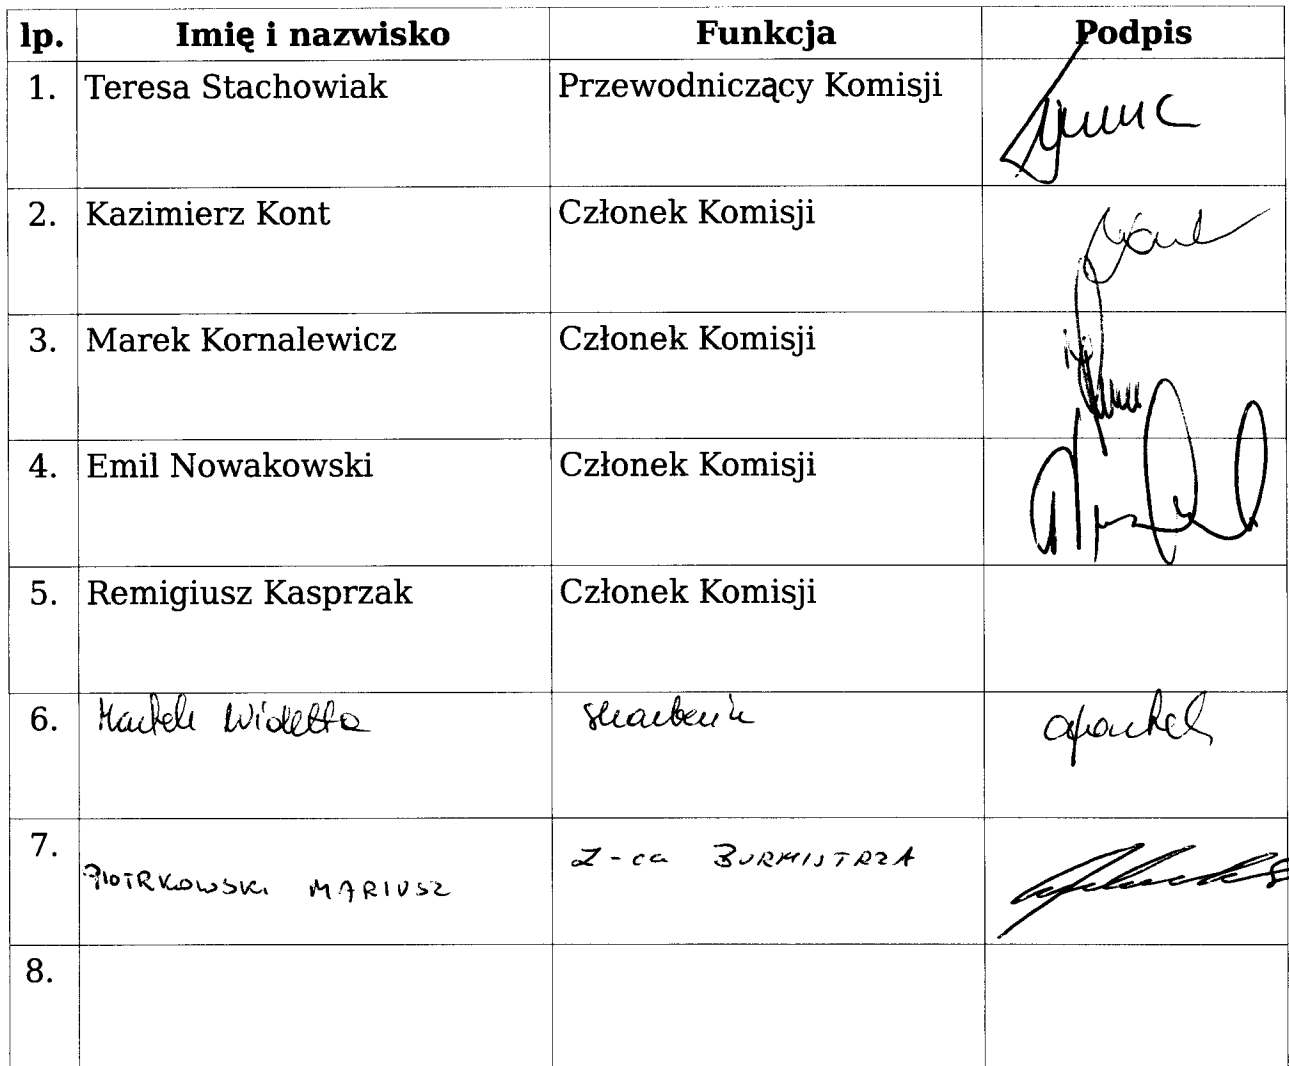 lp. Imię i nazwisko Funkcja Podpis
1. Teresa Stachowiak Przewodniczący Komisji
2. Kazimierz Kont Członek Komisji
3. Marek Kornalewicz Członek Komisji
4. Emil Nowakowski Członek Komisji
5. Remigiusz Kasprzak Członek Komisji
6. Wioletta skarbnik
7. PIOTRKOWSKI MARIUSZ Z-ca BURMISTRZA
8.